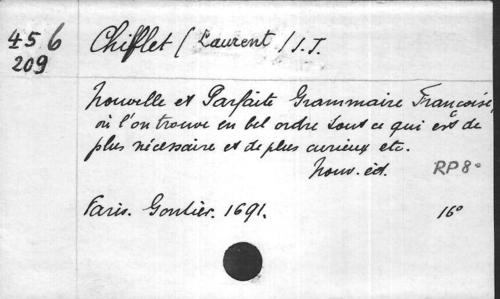 456 Chifflet (Laurent) S.J.
209
Nouvelle et Parfaite Grammaire Françoise,
où l'on trouve en bel ordre tout ce qui est de
plus nécessaire et de plus curieux etc.
Nouv. éd. RP 8°
Paris. Gontier. 1691. 16°